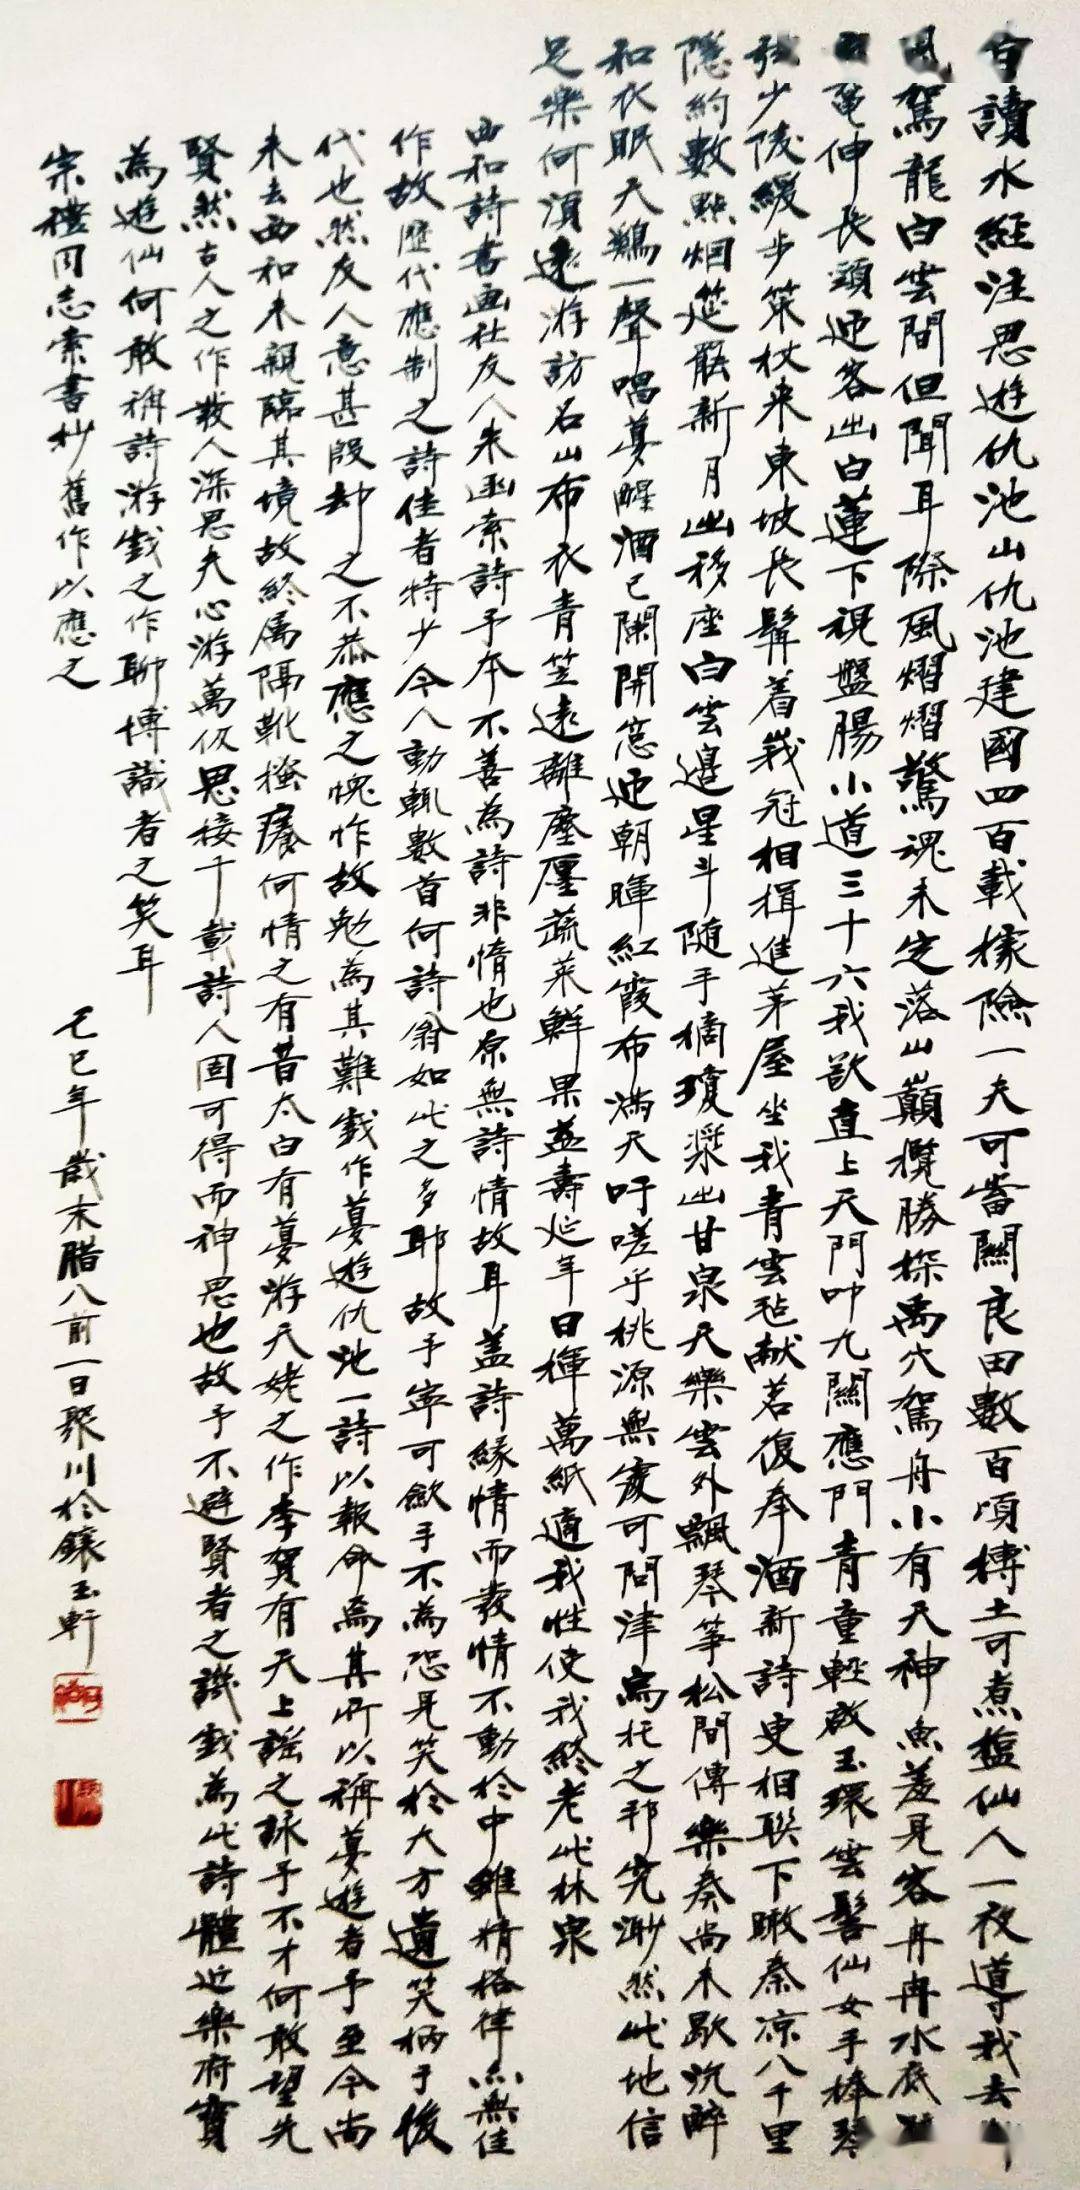 讀水經注思遊仇池山仇池建國四百載據險一夫可當關良田數百頃搏土可煮盐仙人一夜導我去
駕龍白雲間但聞耳際風熠熠驚魂未定落山巔攬勝探禹穴駕舟小有天神魚羞見客冉冉水底
黿伸長頭迎客出白蓮下視盤腸小道三十六我欲直上天門叩九關應門青童輕啟玉環雲髻仙女手捧琴
弦少陵緩步策杖來東坡長髯着峩冠相揖進茅屋坐我青雲毡献茗復奉酒新詩更相聯下瞰秦凉八千里
隱約數點烟筵罷新月出移座白雲邊星斗隨手摘瓊漿出甘泉天樂雲外飄琴筝松間傳樂奏尚未歇沉醉
和衣眠天鷄一聲唱夢醒酒已闌開窓迎朝暉紅霞布滿天吁嗟乎桃源無處可問津烏托之邦究渺然此地信
足樂何須遠游訪名山布衣青笠遠離塵廛蔬菜鮮果益壽延年日揮萬紙適我性使我終老此林泉
西和詩書画社友人来函索詩予本不善為詩非惰也原無詩情故耳蓋詩緣情而發情不動於中雖精格律亦無佳
作故歷代應制之詩佳者特少今人動輒數首何詩翁如此之多耶故予寧可歛手不為恐見笑於大方遺笑柄于後
代也然友人意甚殷却之不恭應之愧怍故勉為其難戲作夢遊仇池一詩以報命焉其所以稱夢遊者予至今尚
未去西和未親臨其境故終属隔靴搔癢何情之有昔太白有夢游天姥之作李賀有天上謠之詠予不才何敢望先
賢然古人之作發人深思夫心游萬仞思接千載詩人固可得而神思也故予不避賢者之譏戲為此詩體近樂府實
為遊仙何敢稱詩游戲之作聊博識者之笑耳
宗禮同志索書抄舊作以應之
己巳年歲末腊八前一日聚川於鑲玉軒